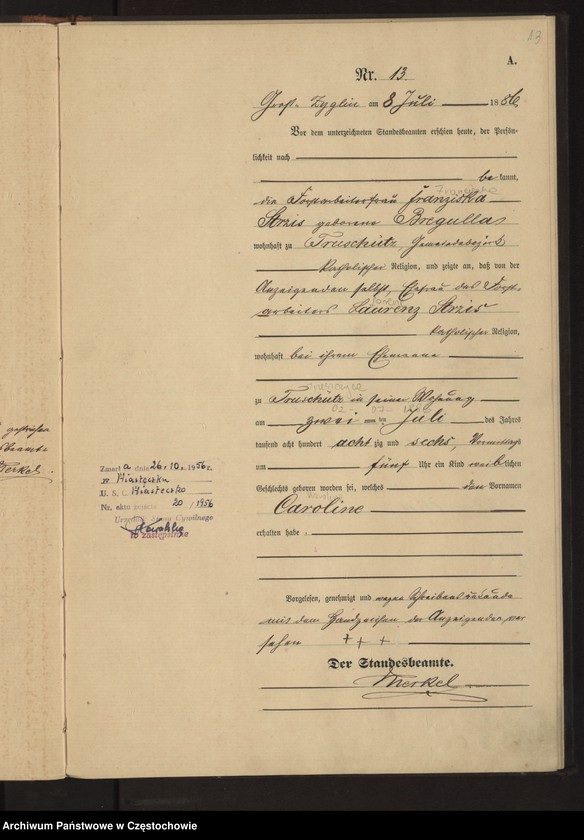 13
A.
Nr. 13.
Groß-Zyglin am 8 Juli 1886
Vor dem unterzeichneten Standesbeamten erschien heute, der Persön-
lichkeit nach
be kannt,
die Forstarbeiterfrau Franziska
Strzis geborene Bregulla
wohnhaft zu Truschütz, Gemeindebezirk
katholischer Religion, und zeigte an, daß von der
Anzeigenden selbst, Ehefrau des Forst-
arbeiters Laurenz Strzis
katholischer Religion,
wohnhaft bei ihrem Ehemanne
zu Truschütz in seiner Wohnung
am zwei ten Juli des Jahres
tausend acht hundert acht zig und sechs, Vormittags
um fünf Uhr ein Kind weib lichen
Geschlechts geboren worden sei, welches den Vornamen
Caroline
erhalten habe.
Vorgelesen, genehmigt und wegen Schreibensunkunde
mit dem Handzeichen der Anzeigenden ver
sehen + + +
Der Standesbeamte.
Merkel
Zmarła dnia 26.10.1956 r.
w Miasteczku
U. S. C. Miasteczko
Nr. aktu zejścia 20/1956
Urzędnik Stanu Cywilnego
w zastępstwie
Merkel.
Archiwum Państwowe w Częstochowie